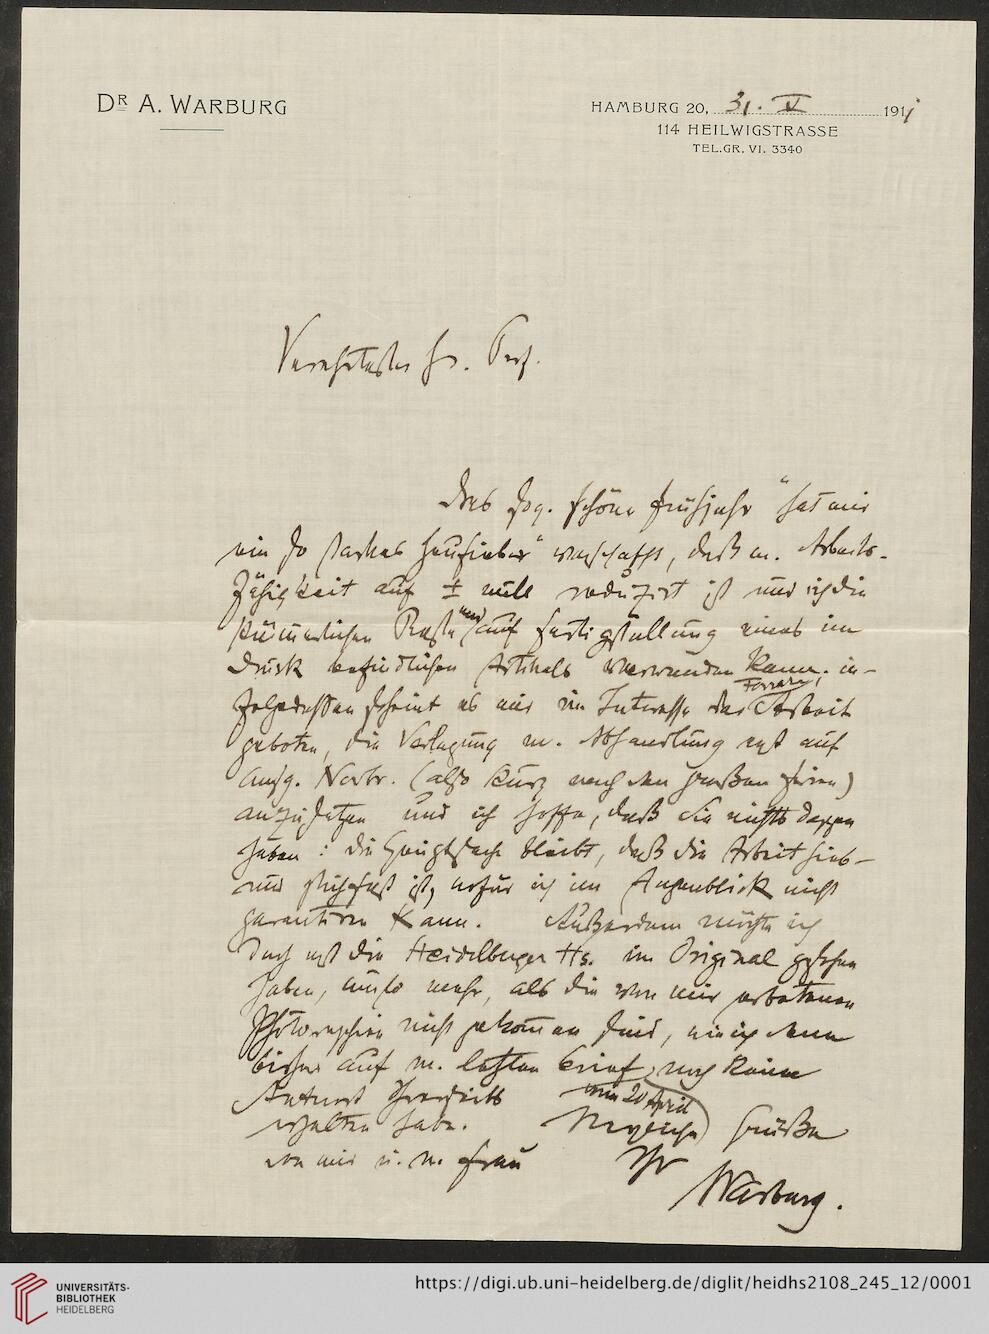 Dr A. WARBURG
HAMBURG 20, 31. V 1911
114 HEILWIGSTRASSE
TEL.GR. VI. 3340
Verehrtester Hr. Prof.
Das sog. schöne Frühjahr hat mir
ein so starkes Heufieber verschafft, daß m. Arbeits-
fähigkeit auf ± null reduzirt ist und ich die
kümmerlichen Reste nur auf Fertigstellung eines im
Druck befindlichen Artikels verwenden kann; in-
folgedessen scheint es mir im Interesse der Ferrara Arbeit
geboten, die Verlegung m. Abhandlung erst auf
Anfg. Novbr. (also kurz nach den großen Ferien)
anzusetzen und ich hoffe, daß Sie nichts dagegen
haben: die Hauptsache bleibt, daß die Arbeit hieb-
und stichfest ist, wofür ich im Augenblick nicht
garantiren kann. Außerdem möchte ich
doch erst die Heidelberger Hs. im Original gesehen
haben, umso mehr, als die von mir erbetenen
Photographien nicht gekommen sind, wie ich denn
bisher auf m. letzten Brief vom 20 April noch keine
Antwort Ihrerseits
erhalten habe. Grüße
von mir u. m. Frau
Ihr
Warburg.
UNIVERSITÄTS-
BIBLIOTHEK
HEIDELBERG
https://digi.ub.uni-heidelberg.de/diglit/heidhs2108_245_12/0001